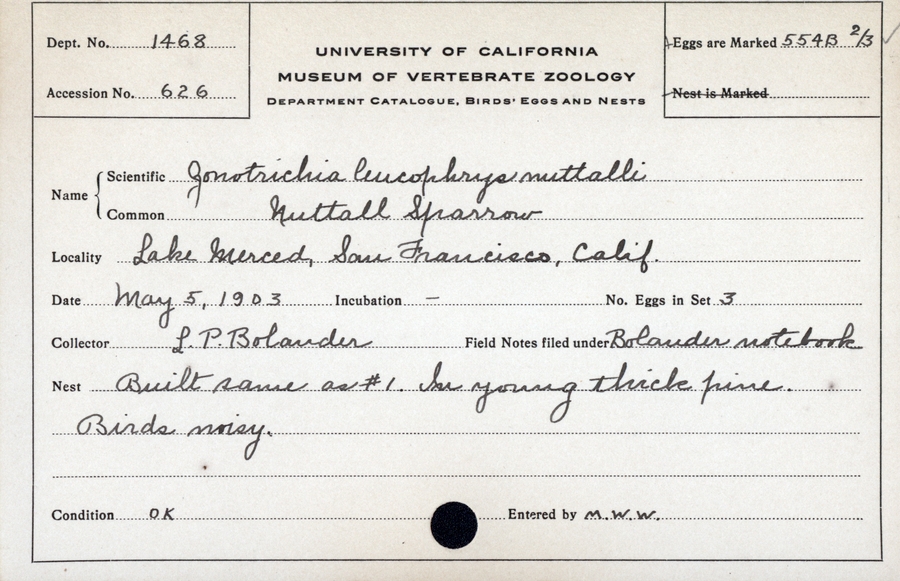 Dept. No. 1468
Accession No. 626
UNIVERSITY OF CALIFORNIA
MUSEUM OF VERTEBRATE ZOOLOGY
DEPARTMENT CATALOGUE, BIRDS' EGGS AND NESTS
Eggs are Marked 554B 2/3
Nest is Marked
Name
Scientific Zonotrichia leucophrys nuttalli
Common Nuttall Sparrow
Locality Lake Merced, San Francisco, Calif.
Date May 5, 1903 Incubation – No. Eggs in Set 3
Collector L. P. Bolander Field Notes filed under Bolander notebook
Nest Built same as #1. In young thick pine.
Birds noisy.
Condition OK Entered by M.W.W.